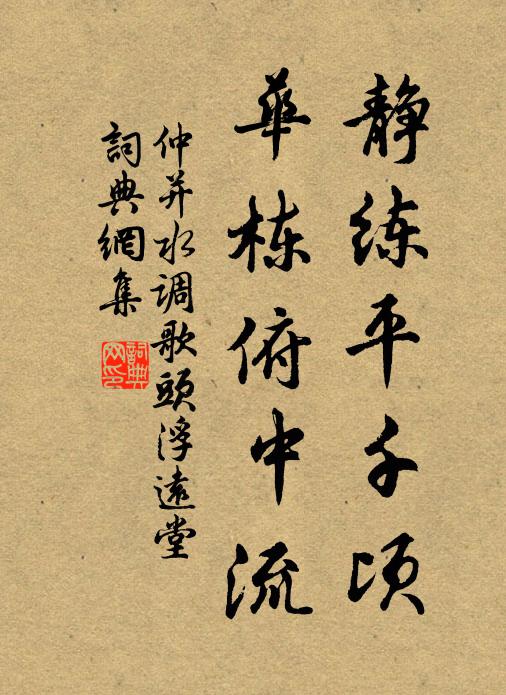 静练平千顷
華栋俯中流
仲并水调歌頭浮遠堂
詞典網集
詞典网印